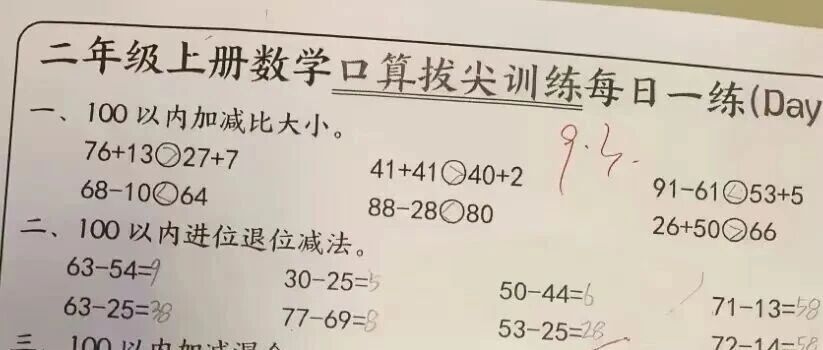 二年级上册数学口算拔尖训练每日一练(Day
一、100以内加减比大小。
76+13>27+7 41+41>40+2 91-61<53+5
68-10<64 88-28<80 26+50>66
二、100以内进位退位减法。
63-54=9 30-25=5 50-44=6 71-13=58
63-25=38 77-69=8 53-25=28 72-14=58
三、100以内加减混合